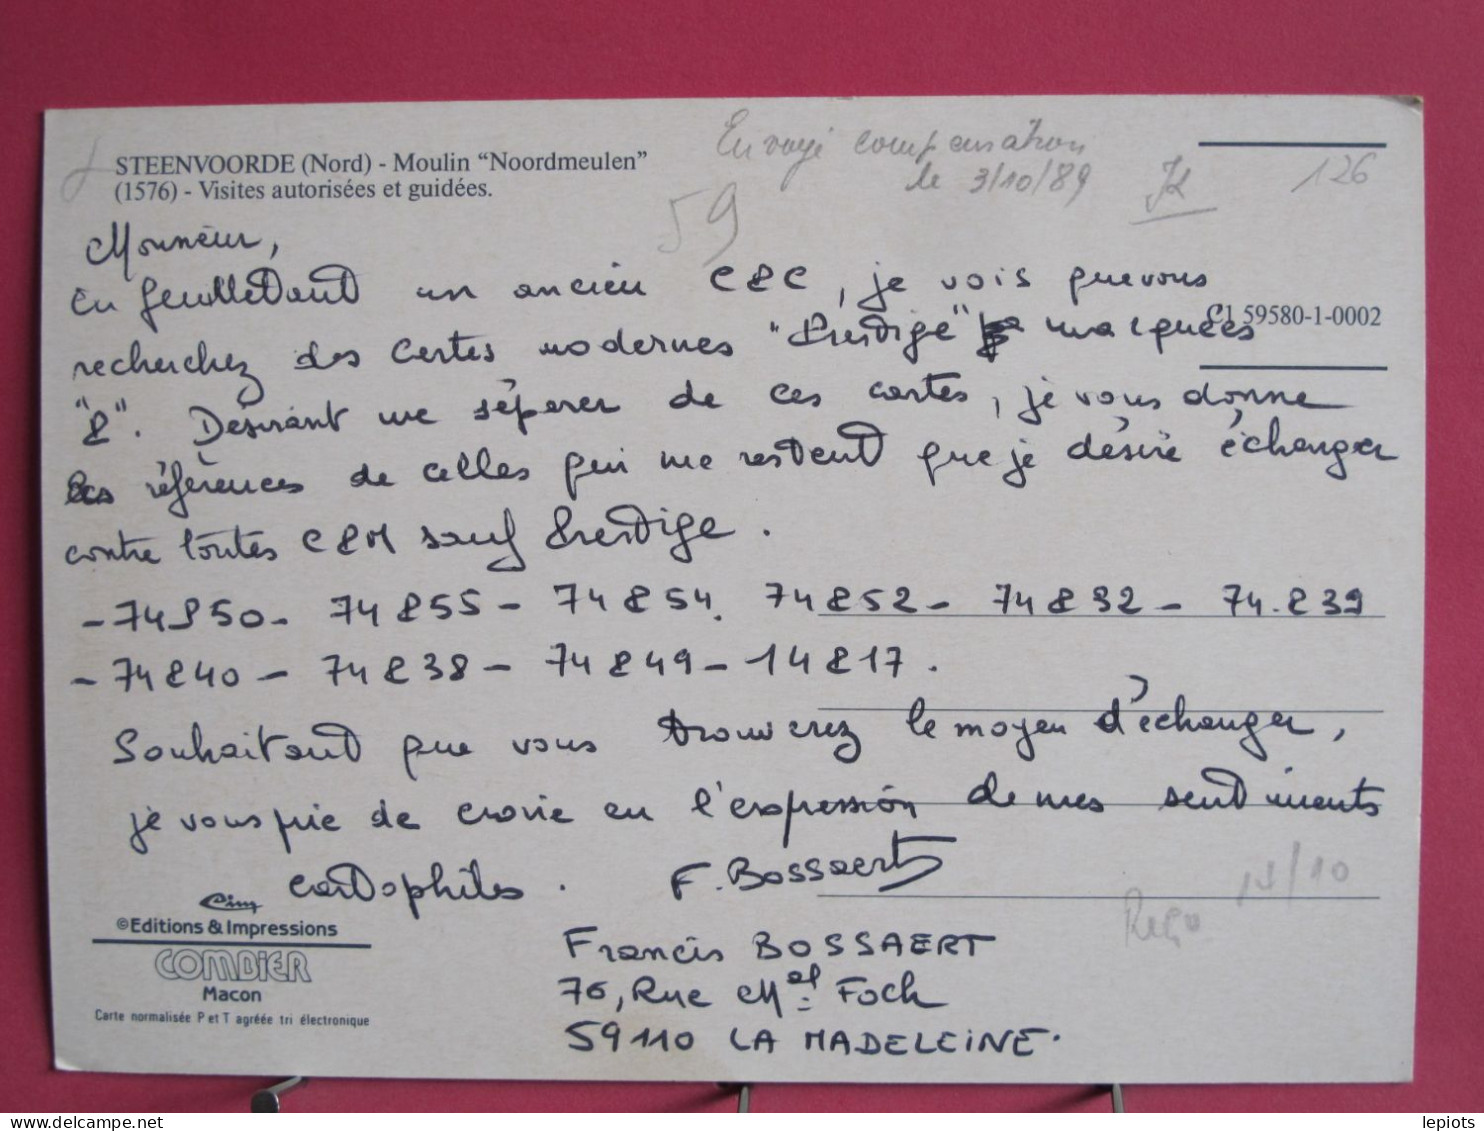 STEENVOORDE (Nord) - Moulin "Noordmeulen"
(1576) - Visites autorisées et guidées.
Envoyé compensation
le 3/10/89
126
59
Monsieur,
En feuilletant un ancien CPC, je vois que vous
C1 59580-1-0002
recherchez des cartes modernes "Prestige" marquées
"P". Désirant me séparer de ces cartes, je vous donne
les références de celles qui me restent que je désire échanger
contre toutes CPM sauf Prestige.
- 74P50 - 74P55 - 74P54. 74P52 - 74P32 - 74.P39
- 74P40 - 74P38 - 74P49 - 14P17.
Souhaitant que vous trouverez le moyen d'échanger,
je vous prie de croire en l'expression de mes sentiments
cartophiles. F. Bossaert
Reçu 14/10
Cim
©Editions & Impressions
COMBIER
Macon
Carte normalisée P et T agréée tri électronique
Francis BOSSAERT
76, Rue Mal Foch
59110 LA MADELEINE.
delcampe.net
lepiots